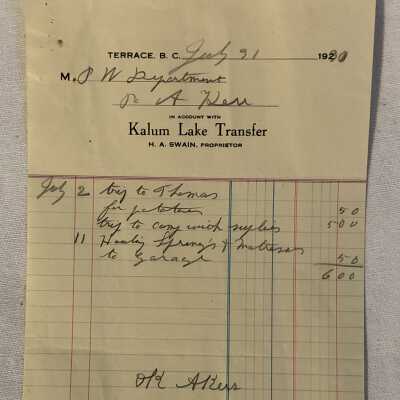 TERRACE, B. C. July 31 1930
M. P W Department
A Kerr
IN ACCOUNT WITH
Kalum Lake Transfer
H. A. SWAIN, PROPRIETOR
July 2 trip to Thomas
for potatoes 50
trip to camp with supplies 5 00
11 Hauling Springs & Matresses
to Garage 50
6 00
OK AKerr